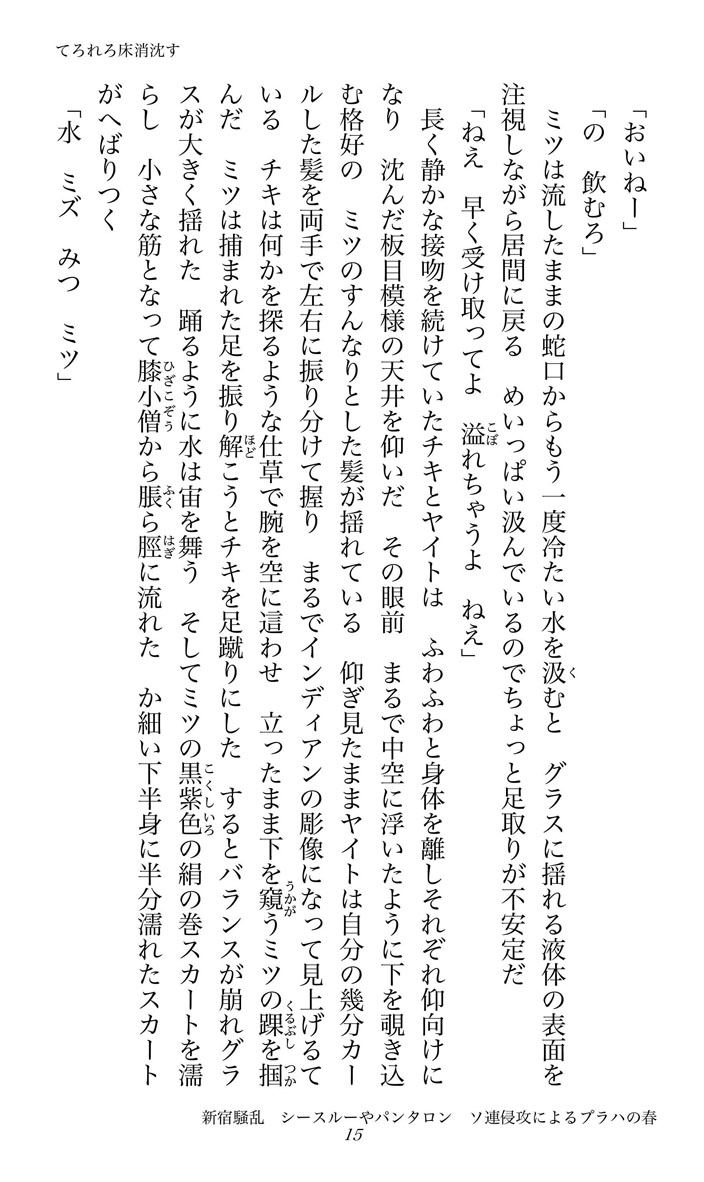 てろれろ床消沈す
「おいねー」
「の　飲むろ」
　ミツは流したままの蛇口からもう一度冷たい水を汲むと　グラスに揺れる液体の表面を
注視しながら居間に戻る　めいっぱい汲んでいるのでちょっと足取りが不安定だ
「ねえ　早く受け取ってよ　溢れちゃうよ　ねえ」
　長く静かな接吻を続けていたチキとヤイトは　ふわふわと身体を離しそれぞれ仰向けに
なり　沈んだ板目模様の天井を仰いだ　その眼前　まるで中空に浮いたように下を覗き込
む格好の　ミツのすんなりとした髪が揺れている　仰ぎ見たままヤイトは自分の幾分カー
ルした髪を両手で左右に振り分けて握り　まるでインディアンの彫像になって見上げるて
いる　チキは何かを探るような仕草で腕を空に這わせ　立ったまま下を窺うミツの踝を掴
んだ　ミツは捕まれた足を振り解こうとチキを足蹴りにした　するとバランスが崩れグラ
スが大きく揺れた　踊るように水は宙を舞う　そしてミツの黒紫色の絹の巻スカートを濡
らし　小さな筋となって膝小僧から脹ら脛に流れた　か細い下半身に半分濡れたスカート
がへばりつく
「水　ミズ　みつ　ミツ」
新宿騒乱　シースルーやパンタロン　ソ連侵攻によるプラハの春
15